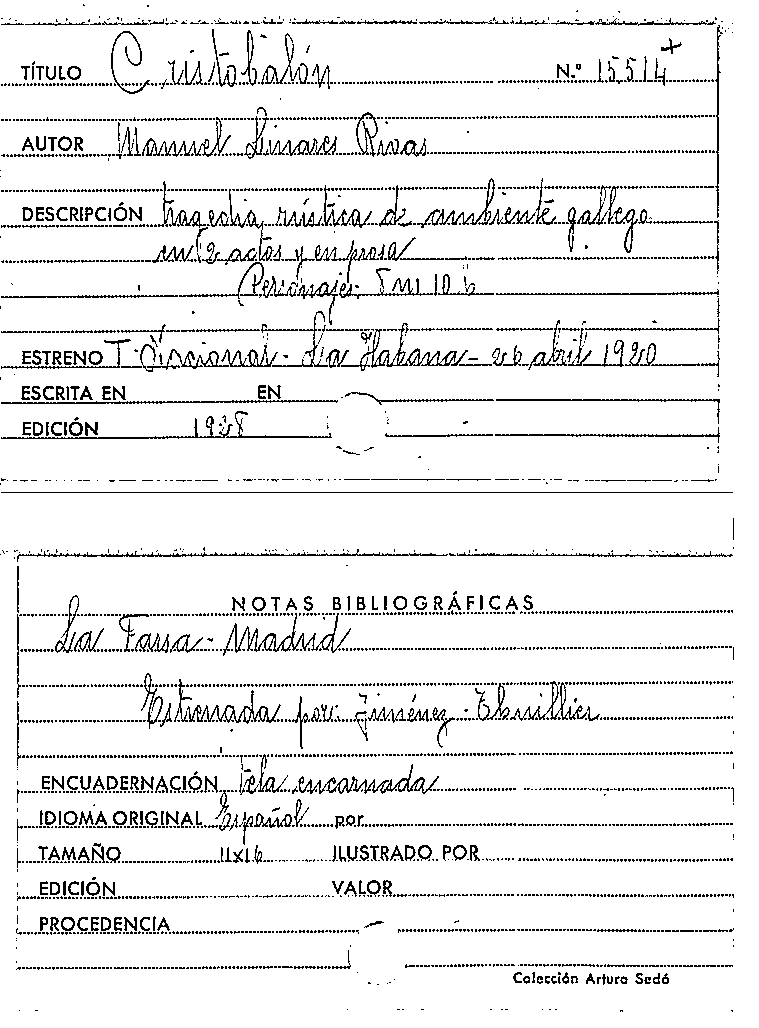 TÍTULO Cristobalón N.º 15514+
AUTOR Manuel Linares Rivas
DESCRIPCIÓN tragedia rústica de ambiente gallego
en 2 actos y en prosa
Personajes: 8 m 10 h
ESTRENO T. Nacional - La Habana - 26 abril 1920
ESCRITA EN EN
EDICIÓN 1928
NOTAS BIBLIOGRÁFICAS
La Farsa - Madrid
Estrenada por: Jiménez - Thuillier
ENCUADERNACIÓN tela encarnada
IDIOMA ORIGINAL Español por
TAMAÑO 11x16 ILUSTRADO POR
EDICIÓN VALOR
PROCEDENCIA
Colección Arturo Sedó